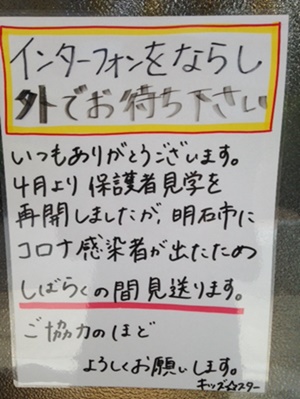 インターフォンをならし
外でお待ち下さい
いつもありがとうございます。
4月より保護者見学を
再開しましたが、明石市に
コロナ感染者が出たため
しばらくの間見送ります。
ご協力のほど
よろしくお願いします。
キッズ☆スター